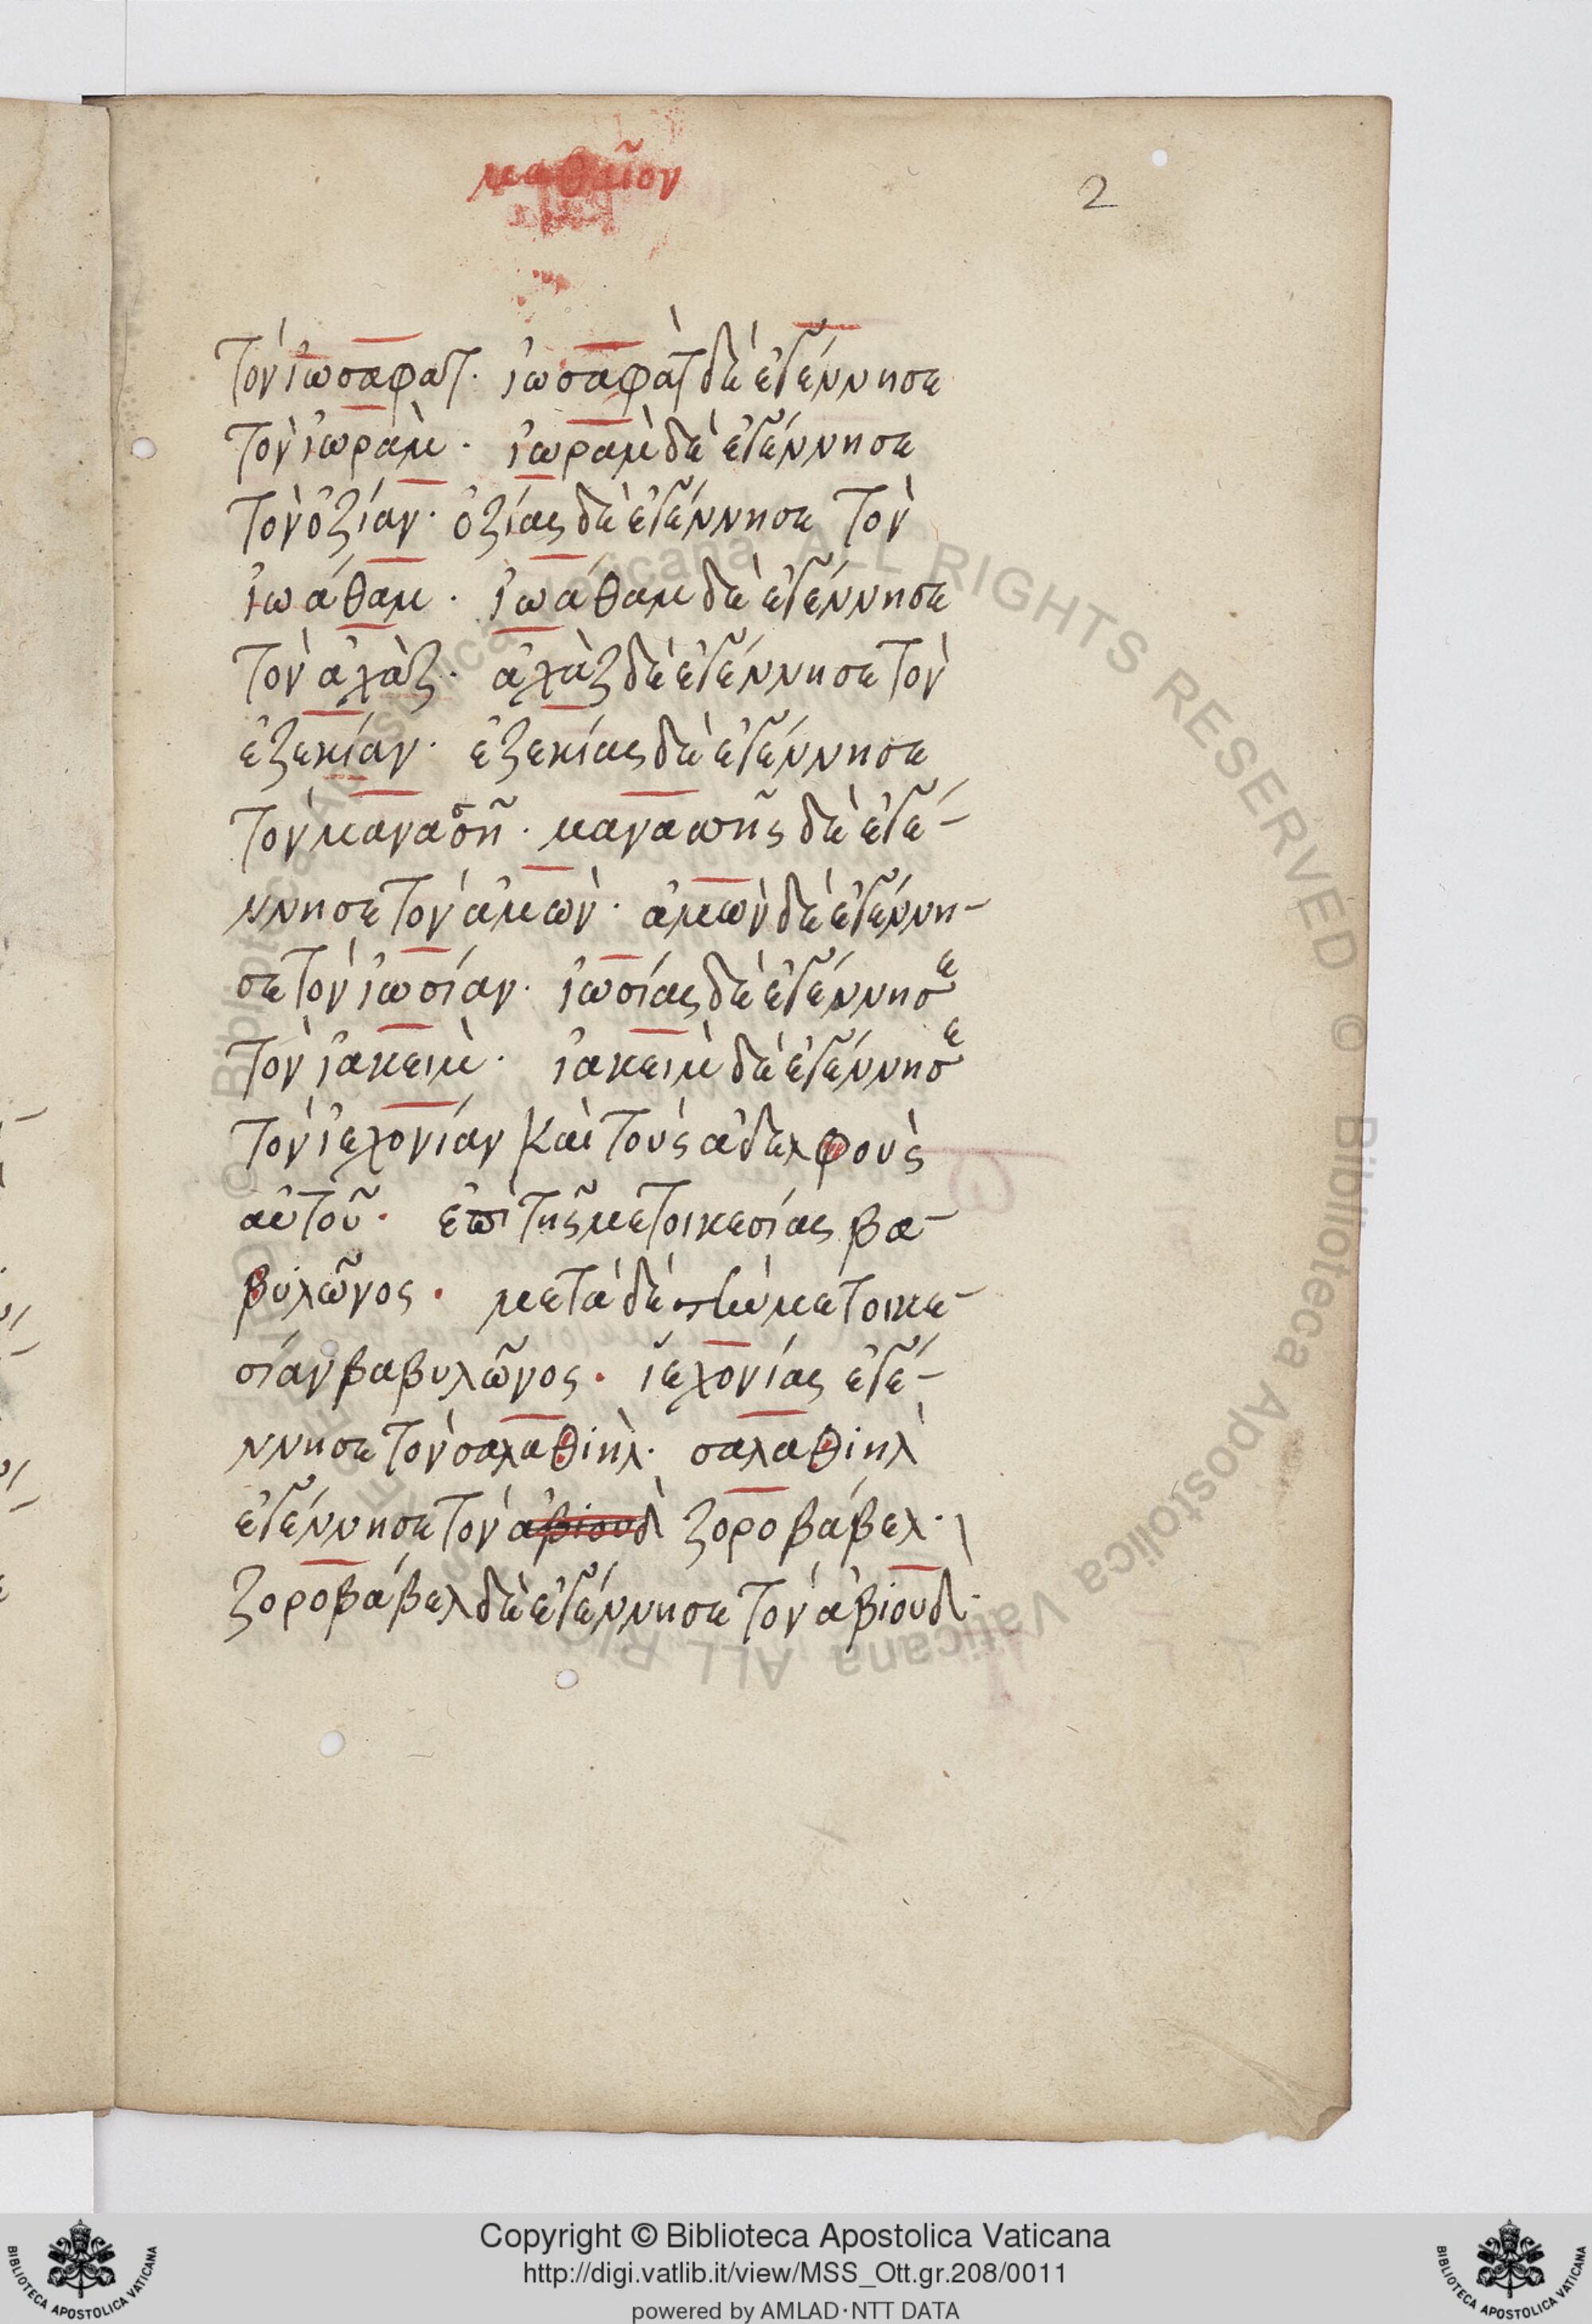 μαθαῖον
2
τὸν ἰωσαφατ· ἰωσαφὰτ δὲ ἐγέννησε
τὸν ἰωραμ· ἰωραμ δὲ ἐγέννησε
τὸν ὀζίαν· ὀζίας δὲ ἐγέννησε τὸν
ἰωάθαμ· ἰωάθαμ δὲ ἐγέννησε
τὸν ἀχὰζ· ἀχὰζ δὲ ἐγέννησε τὸν
ἐζεκίαν· ἐζεκίας δὲ ἐγέννησε
τὸν μανασσῆ· μανασσῆς δὲ ἐγέ-
ννησε τὸν ἀμὼν· ἀμὼν δὲ ἐγέννη-
σε τὸν ἰωσίαν· ἰωσίας δὲ ἐγέννησε
τὸν ἰακειμ· ἰακειμ δὲ ἐγέννησε
τὸν ἰεχονίαν καὶ τοὺς ἀδελφοὺς
αὐτοῦ· ἐπὶ τῆς μετοικεσίας βα-
βυλῶνος· μετὰ δὲ τὴν μετοικε-
σίαν βαβυλῶνος· ἰεχονίας ἐγέ-
ννησε τὸν σαλαθιὴλ· σαλαθιὴλ
ἐγέννησε τὸν ἀβιουδ ζοροβάβελ·
ζοροβάβελ δὲ ἐγέννησε τὸν ἀβιουδ·
© Biblioteca Apostolica Vaticana ALL RIGHTS RESERVED © Biblioteca Apostolica Vaticana ALL RIGHTS RESERVED
Copyright © Biblioteca Apostolica Vaticana
http://digi.vatlib.it/view/MSS_Ott.gr.208/0011
powered by AMLAD·NTT DATA
BIBLIOTECA APOSTOLICA VATICANA
BIBLIOTECA APOSTOLICA VATICANA